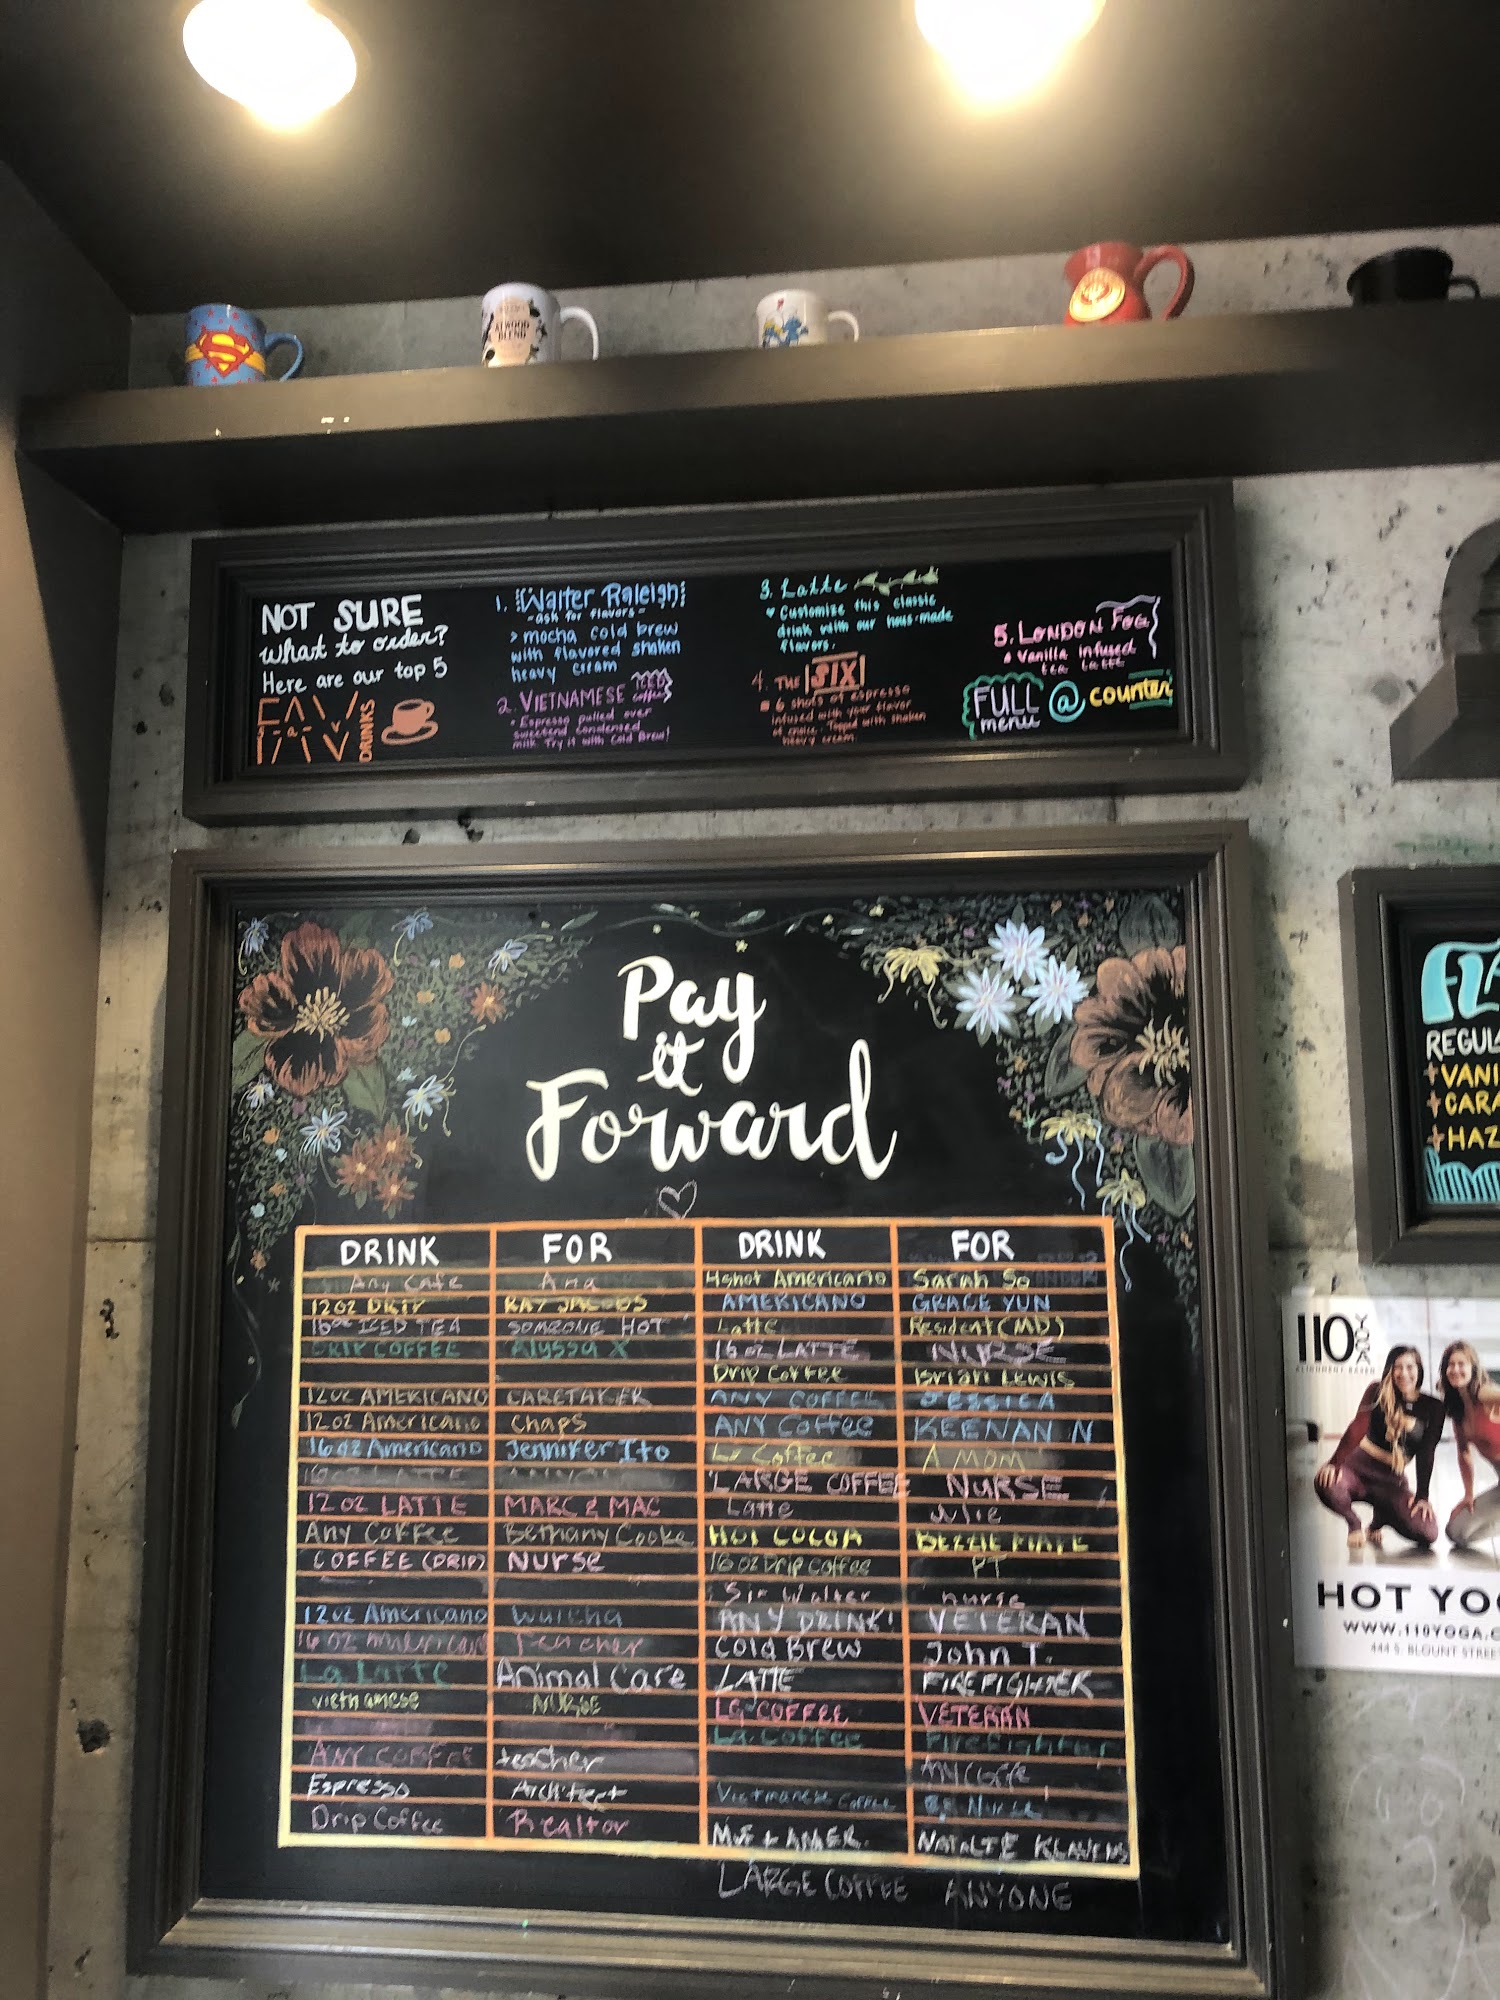 ALWOOD
BLEND
NOT SURE
what to order?
Here are our top 5
FAV
DRINKS
1. Walter Raleigh
-ask for flavors-
> mocha cold brew
with flavored shaken
heavy cream
2. VIETNAMESE iced coffee
• Espresso pulled over
sweetend condensed
milk. Try it with Cold Brew!
3. Latte
♥ Customize this classic
drink with our hous-made
flavors.
4. THE SIX
6 shots of espresso
infused with your flavor
of choice. Topped with shaken
heavy cream.
5. LONDON FOG
Vanilla infused
tea latte
FULL @ counter
menu
Pay
it
Forward
DRINK FOR DRINK FOR
Any Cafe Ana 4shot Americano Sarah So
12oz DRIP RAY JACOBS AMERICANO GRACE YUN
16oz ICED TEA SOMEONE HOT Latte Resident (MD)
DRIP COFFEE Alyssa X 16oz LATTE NURSE
Drip Coffee Brian Lewis
12oz AMERICANO CARETAKER ANY COFFEE JESSICA
12oz Americano Chaps ANY Coffee KEENAN N
16oz Americano Jennifer Ito Lg Coffee A MOM
16oz LATTE LARGE COFFEE NURSE
12oz LATTE MARC & MAC Latte Julie
Any Coffee Bethany Cooke HOT COCOA
COFFEE (DRIP) NURSE 16oz Drip Coffee PT
Sir Walter nurse
12oz Americano ANY DRINK! VETERAN
16oz Teacher Cold Brew John T.
La Latte Animal Care LATTE FIREFIGHTER
vietnamese NURSE LG COFFEE VETERAN
La Coffee Firefighter
ANY COFFEE teacher
Espresso Architect Vietnamese Coffee Nurse
Drip Coffee Realtor NATALIE
LARGE COFFEE ANYONE
REGUL
+VANI
+CARA
+HAZ
110 YOGA
ALIGNMENT BASED
HOT YO
WWW.110YOGA.C
444 S. BLOUNT STREE